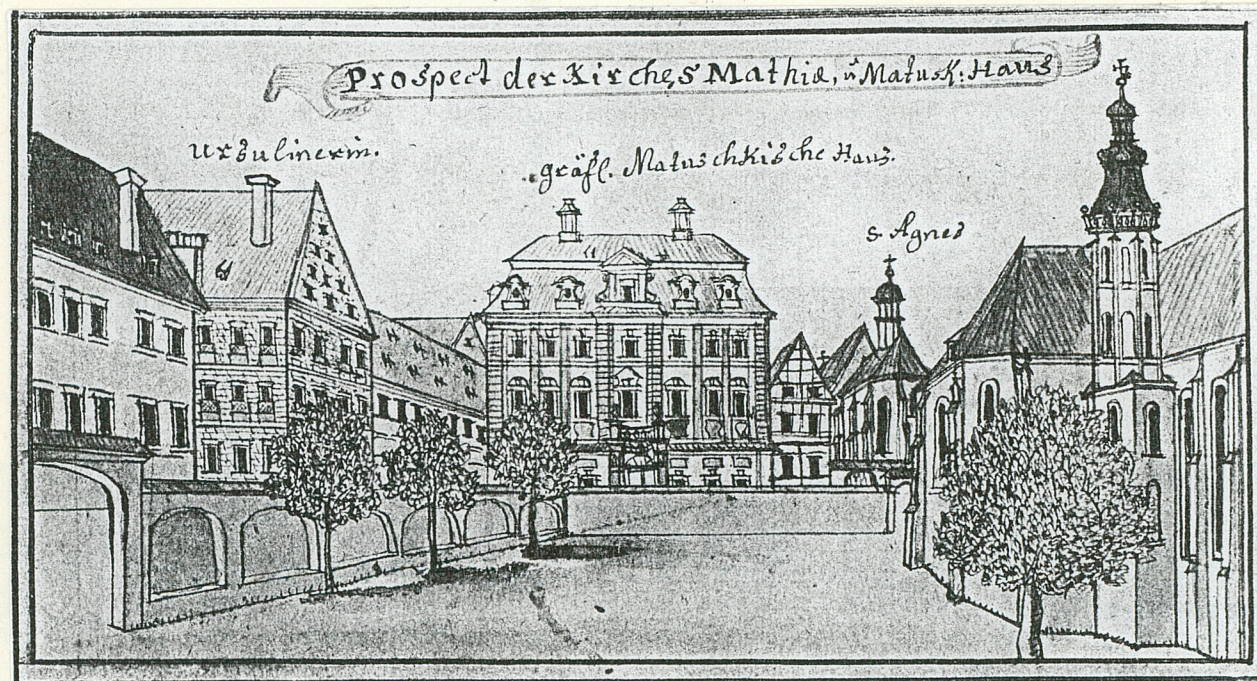 Prospect der Kirche S Mathiæ, ũ Matusk: Haus
Ursulinerin.
gräfl. Matuschkische Haus.
S. Agnes